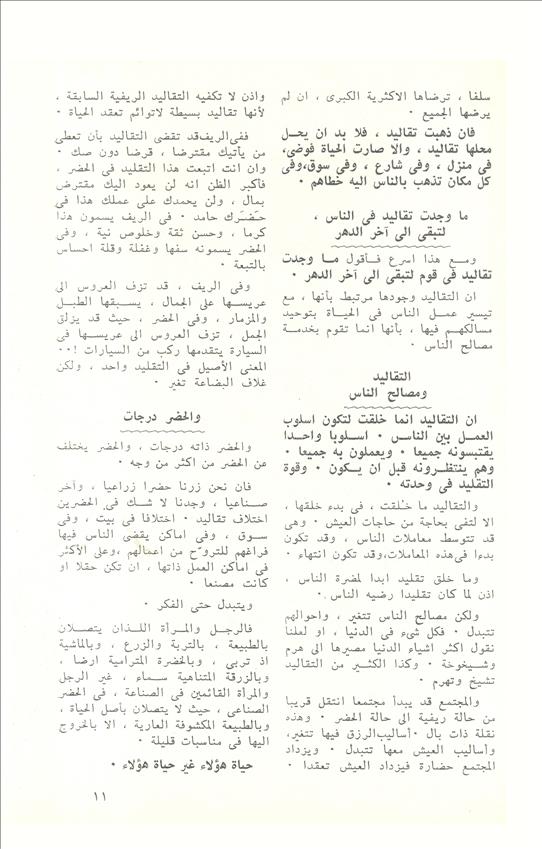 سلفا ، ترضاها الاكثرية الكبرى ، ان لم
يرضها الجميع .
فان ذهبت تقاليد ، فلا بد ان يحل
محلها تقاليد ، والا صارت الحياة فوضى،
فى منزل ، وفى شارع ، وفى سوق،وفى
كل مكان تذهب بالناس اليه خطاهم .
ما وجدت تقاليد فى الناس ،
لتبقى الى آخر الدهر
ومع هذا اسرع فأقول ما وجدت
تقاليد فى قوم لتبقى الى آخر الدهر .
ان التقاليد وجودها مرتبط بأنها ، مع
تيسير عمل الناس فى الحياة بتوحيد
مسالكهم فيها ، بأنها انما تقوم بخدمة
مصالح الناس .
التقاليد
ومصالح الناس
ان التقاليد انما خلقت لتكون اسلوب
العمل بين الناس . اسلوبا واحدا
يقتبسونه جميعا . ويعملون به جميعا .
وهم ينتظرونه قبل ان يكون . وقوة
التقليد فى وحدته .
والتقاليد ما خلقت ، فى بدء خلقها ،
الا لتفى بحاجة من حاجات العيش . وهى
قد تتوسط معاملات الناس ، وقد تكون
بدءا فى هذه المعاملات،وقد تكون انتهاء .
وما خلق تقليد ابدا لمضرة الناس ،
اذن لما كان تقليدا رضيه الناس .
ولكن مصالح الناس تتغير ، واحوالهم
تتبدل . فكل شىء فى الدنيا ، او لعلنا
نقول اكثر اشياء الدنيا مصيرها الى هرم
وشيخوخة . وكذا الكثير من التقاليد
تشيخ وتهرم .
والمجتمع قد يبدأ مجتمعا انتقل قريبا
من حالة ريفية الى حالة الحضر . وهذه
نقلة ذات بال . أساليب الرزق فيها تتغير،
وأساليب العيش معها تتبدل . ويزداد
المجتمع حضارة فيزداد العيش تعقدا .
واذن لا تكفيه التقاليد الريفية السابقة ،
لأنها تقاليد بسيطة لاتوائم تعقد الحياة .
ففى الريف قد تقضى التقاليد بأن تعطى
من يأتيك مقترضا ، قرضا دون صك .
وان انت اتبعت هذا التقليد فى الحضر ،
فأكبر الظن انه لن يعود اليك مقترض
بمال ، ولن يحمدك على عملك هذا فى
حضرك حامد . فى الريف يسمون هذا
كرما ، وحسن ثقة وخلوص نية ، وفى
الحضر يسمونه سفها وغفلة وقلة احساس
بالتبعة .
وفى الريف ، قد تزف العروس الى
عريسها على الجمال ، يسبقها الطبل
والمزمار ، وفى الحضر ، حيث قد يزلق
الجمل ، تزف العروس الى عريسها فى
السيارة يتقدمها ركب من السيارات !..
المعنى الأصيل فى التقليد واحد ، ولكن
غلاف البضاعة تغير .
والحضر درجات
والحضر ذاته درجات ، والحضر يختلف
عن الحضر من اكثر من وجه .
فان نحن زرنا حضرا زراعيا ، وآخر
صناعيا ، وجدنا لا شك فى الحضرين
اختلاف تقاليد . اختلافا فى بيت ، وفى
سوق ، وفى اماكن يقضى الناس فيها
فراغهم للتروّح من اعمالهم ،وعلى الأكثر
فى اماكن العمل ذاتها ، ان تكن حقلا او
كانت مصنعا .
ويتبدل حتى الفكر .
فالرجل والمرأة اللذان يتصلان
بالطبيعة ، بالتربة والزرع ، وبالماشية
اذ تربى ، وبالخضرة المترامية ارضا ،
وبالزرقة المتناهية سماء ، غير الرجل
والمرأة القائمين فى الصناعة ، فى الحضر
الصناعى ، حيث لا يتصلان بأصل الحياة ،
وبالطبيعة المكشوفة العارية ، الا بالخروج
اليها فى مناسبات قليلة .
حياة هؤلاء غير حياة هؤلاء .
١١